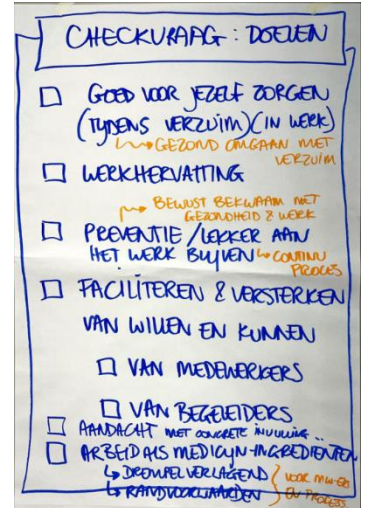 CHECKVRAAG : DOELEN
GOED VOOR JEZELF ZORGEN
(TIJDENS VERZUIM) (IN WERK)
GEZOND OMGAAN MET
VERZUIM
WERKHERVATTING
BEWUST BEKWAAM MET
GEZONDHEID & WERK
PREVENTIE / LEKKER AAN
HET WERK BLIJVEN CONTINU
PROCES
FACILITEREN & VERSTERKEN
VAN WILLEN EN KUNNEN
VAN MEDEWERKERS
VAN BEGELEIDERS
AANDACHT MET CONCRETE INVULLING ..
ARBEID ALS MEDICIJN-INGREDIENTEN
DREMPELVERLAGEND VOOR
RANDVOORWAARDEN EN PROCES